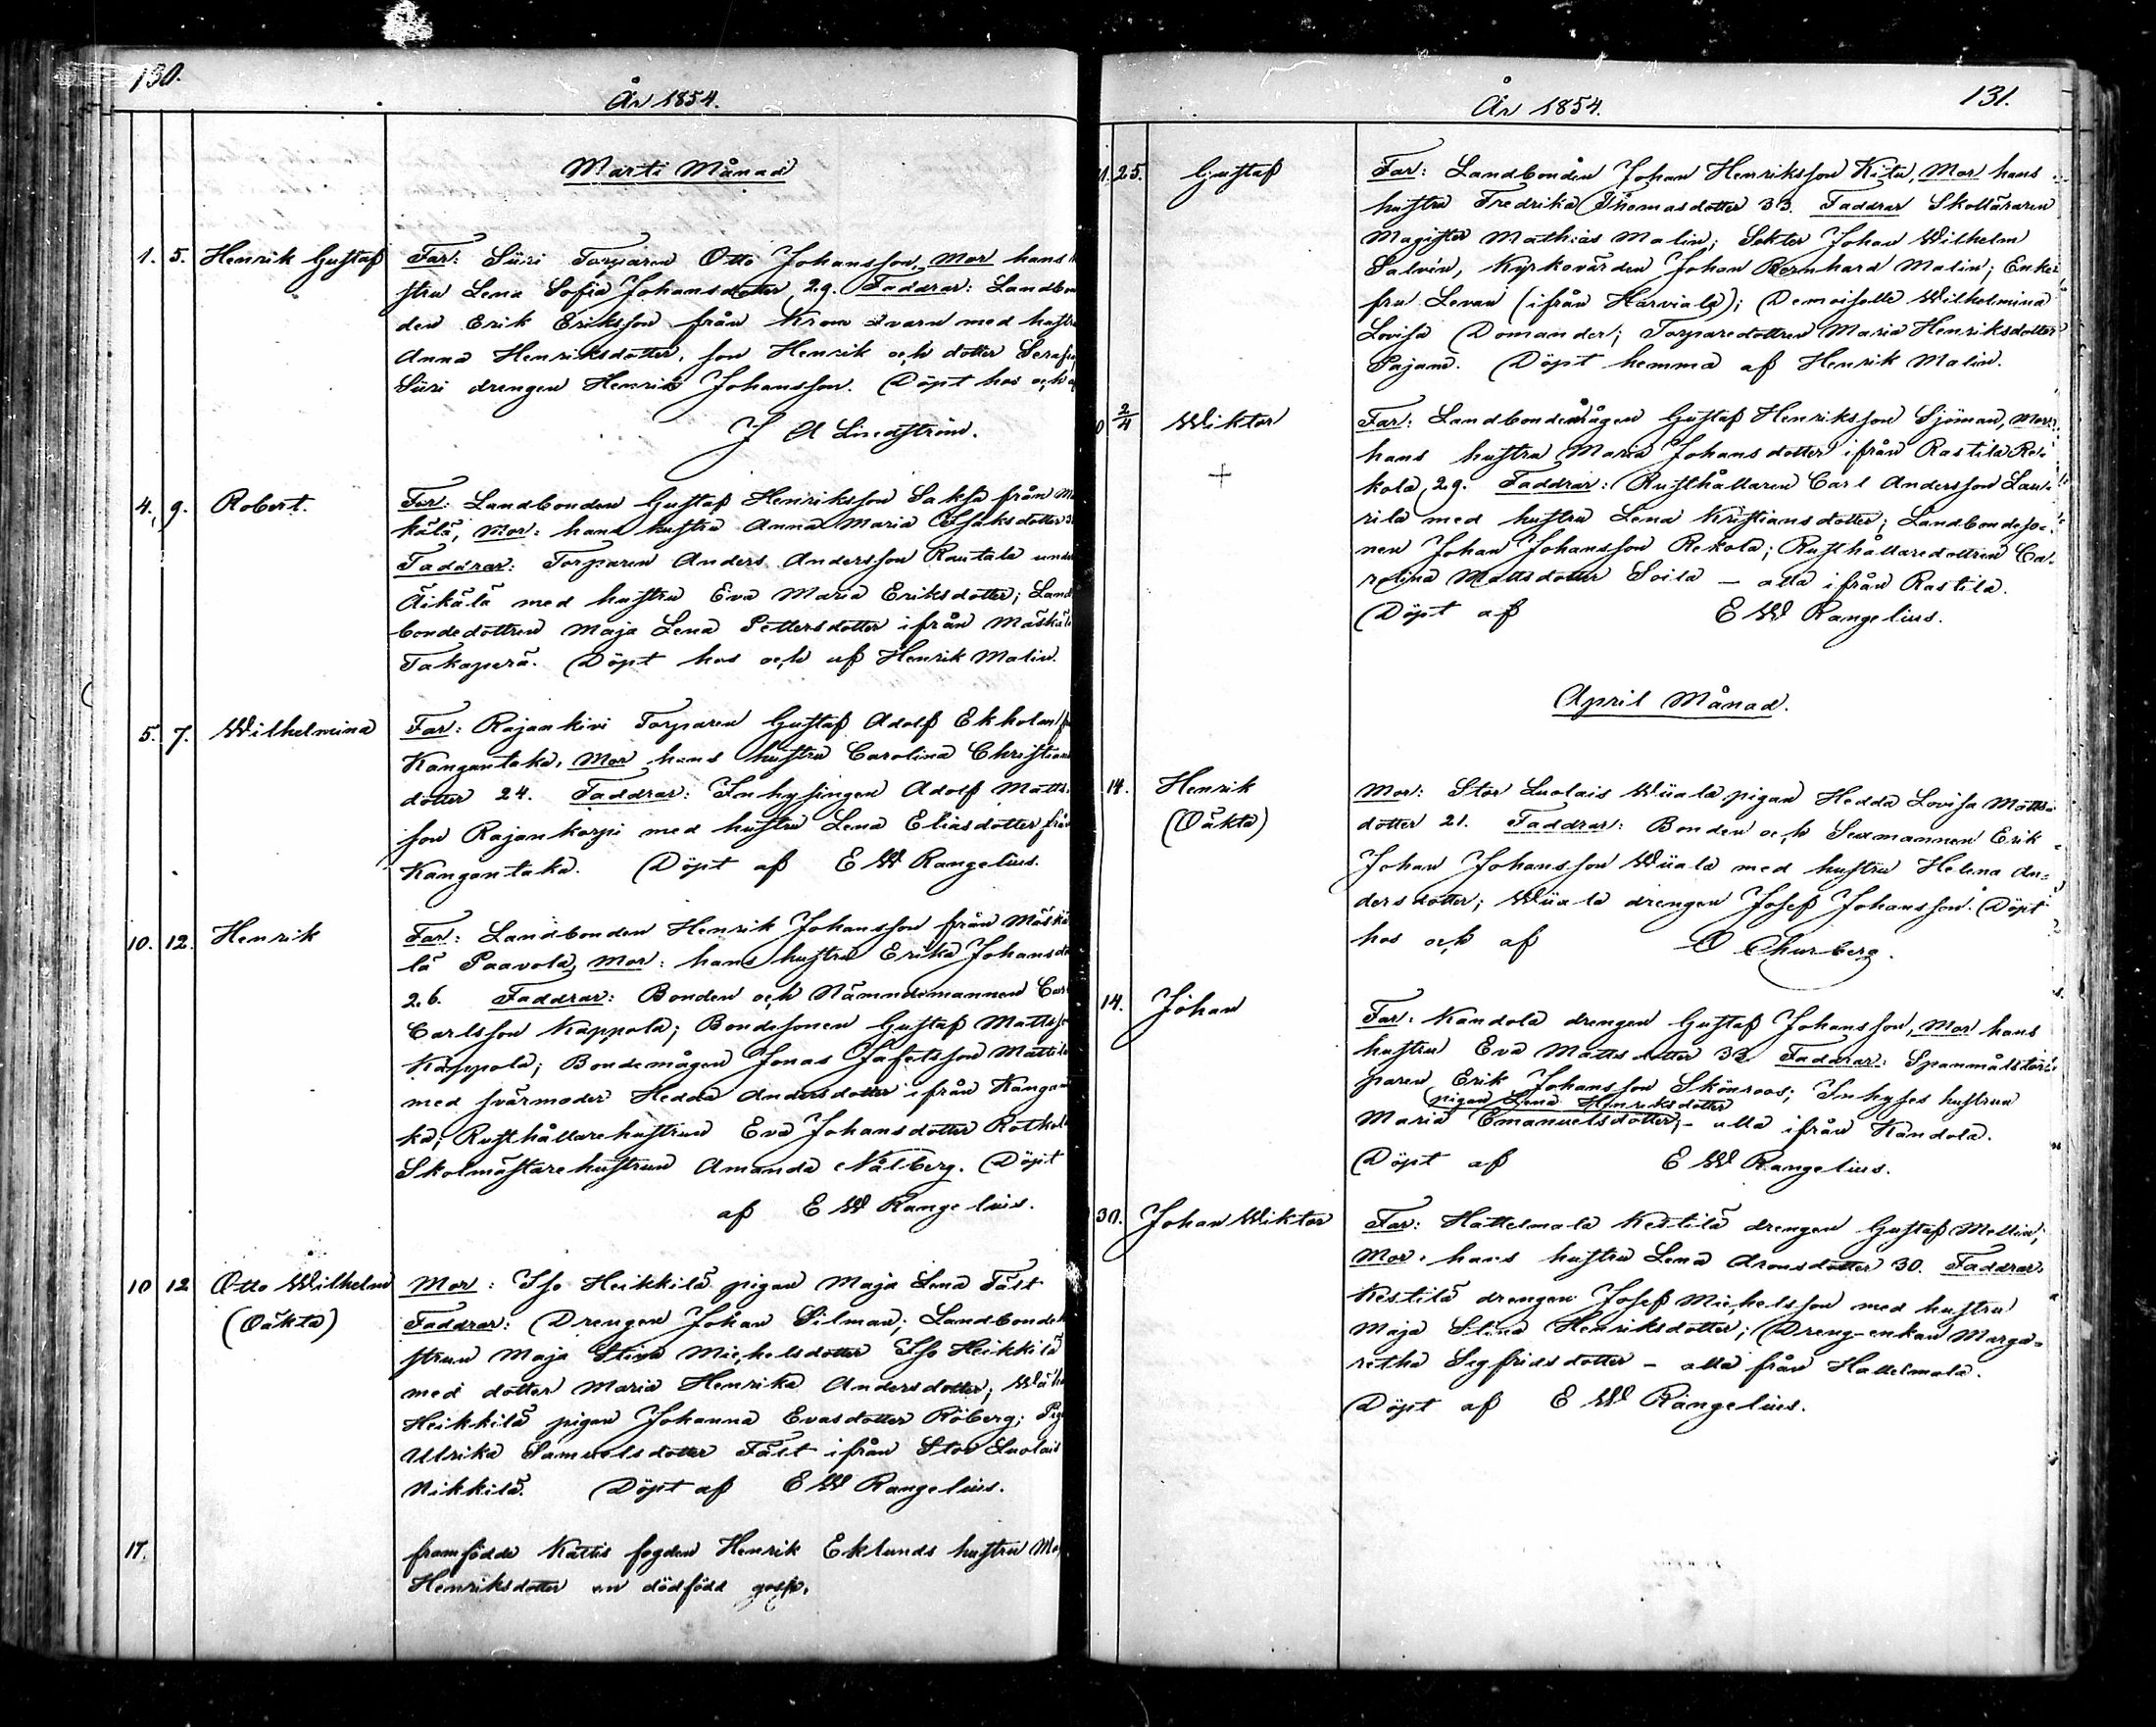 130.
År 1854.
Marti Månad
1. 5. Henrik Gustaf Far: Siiri Torparen Otto Johansson, Mor hans
stru Lena Sofia Johansdotter, 29. Faddrar: Landbon
den Erik Eriksson från Krono qvarn med hustru
Anna Henriksdotter, son Henrik och dotter Serafi
Siiri drengen Henrik Johansson. Döpt hos och
J A Lindström.
4. 9. Robert. Far: Landbonden Gustaf Henriksson Saksa från Mä
kälä, Mor: hans hustru Anna Maria Isaksdotter
Faddrar: Torparen Anders Andersson Rautala under
Äikälä med hustru Eva Maria Eriksdotter; Land
bondedottren Maja Lena Pettersdotter ifrån Mäskälä
Takaperä. Döpt hos och af Henrik Malin.
5. 7. Wilhelmina Far: Rajankivi Torparen Gustaf Adolf Ekholm
Kangantaka, Mor hans hustru Carolina Christians
dotter 24. Faddrar: Inhysingen Adolf Matts
son Rajankorpi med hustru Lena Eliasdotter från
Kangantaka. Döpt af E W Rangelius.
10. 12. Henrik Far: Landbonden Henrik Johansson från Mäskä
lä Paavola, Mor: hans hustru Erika Johansdo
26. Faddrar: Bonden och Nämndemannen Carl
Carlsson Kappola; Bondesonen Gustaf Mattsso
Kappola; Bondemågen Jonas Jafetsson Mattila
med svärmoder Hedda Andersdotter ifrån Kangan
ka; Rusthållarehustrun Eva Johansdotter
Skolmästarehustrun Amanda Nålberg. Döpt
af E W Rangelius.
10 12 Otto Wilhelm Mor: Iso Heikkilä pigan Maja Lena Fält
(Oäkta) Faddrar: Drengen Johan Silman; Landbondeh
strun Maja Stina Michelsdotter Iso Heikkilä
med dotter Maria Henrika Andersdotter; Wähä
Heikkilä pigan Johanna Evasdotter Röberg; Pig
Ulrika Samuelsdotter Fält ifrån Stor Luolais
Nikkilä. Döpt af E W Rangelius.
17. framfödde Kattis fogden Henrik Eklunds hustru Ma
Henriksdotter en dödfödd goss.
År 1854. 131.
25. Gustaf Far: Landbonden Johan Henriksson Kitu, Mor hans
hustru Fredrika Thomasdotter 33. Faddrar Skolläraren
Magister Mathias Malin; Sekter Johan Wilhelm
Salvén, Kyrkovärden Johan Bernhard Malin; Enke
fru Levan (ifrån Harviala); Demoiselle Wilhelmina
Lovisa Domander; Torparedottren Maria Henriksdotter
Pajam. Döpt hemma af Henrik Malin.
2/4 Wiktor Far: Landbondemågen Gustaf Henriksson Sjöman, Mor:
+ hans hustru Maria Johansdotter ifrån Rastila Re-
kola, 29. Faddrar: Rusthållaren Carl Andersson Lau-
rila med hustru Lena Kristiansdotter; Landbondeso-
nen Johan Johansson Rekola; Rusthållaredottren Ca-
rolina Mattsdotter Soila – alla ifrån Rastila.
Döpt af E W Rangelius.
April Månad.
14. Henrik Mor: Stor Luolais Wiiala pigan Hedda Lovisa Matts-
(Oäkta) dotter 21. Faddrar: Bonden och Sexmannen Erik
Johan Johansson Wiiala med hustru Helena An-
dersdotter; Wiiala drengen Josef Johansson. Döpt
hos och af O Churberg.
14. Johan Far: Kandola drengen Gustaf Johansson, Mor hans
hustru Eva Mattsdotter 33 Faddrar: Spanmålstor-
paren Erik Johansson Skönroos; Inhyses hustrun
pigan Lena Henriksdotter
Maria Emanuelsdotter, – alla ifrån Kandola.
Döpt af E W Rangelius.
30. Johan Wiktor Far: Hattelmala Kestilä drengen Gustaf Mellin;
Mor: hans hustru Lena Aronsdotter 30. Faddrar:
Kestilä drengen Josef Michelsson med hustru
Maja Stina Henriksdotter; Dreng-enkan Marga-
retha Segfridsdotter – alla från Hattelmala.
Döpt af E W Rangelius.